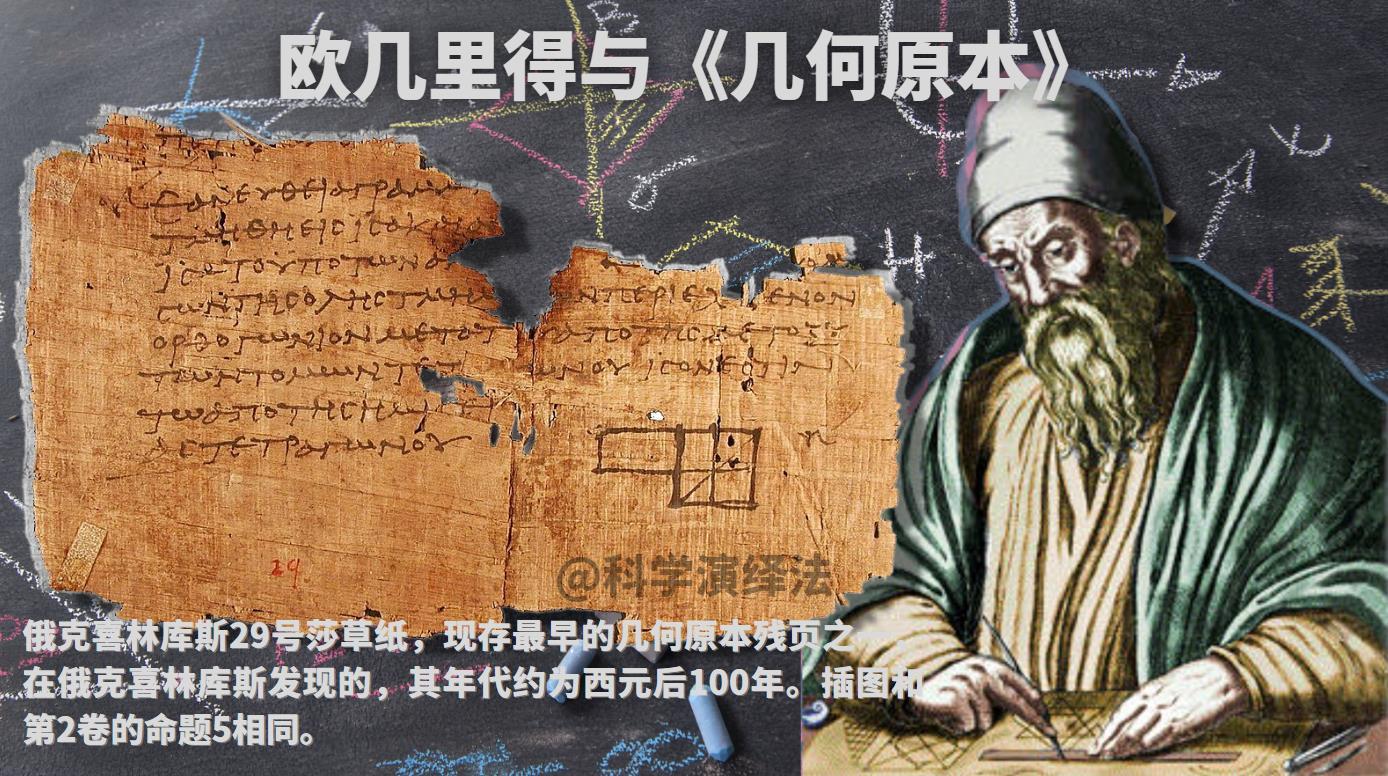 欧几里得与《几何原本》
ΕΑΝΕΥΘΕΙΑΓΡΑΜ
ΤΜΗΘΗΕΙϹΙϹΑΚΑ
ΙϹΑΤΟΥΠΟΤΩΝΑ
ϹΩΝΤΗϹΟΛΗϹΤΜΗΜ ΝΠΕΡΙΕΧ ΕΝΟΝ
ΟΡΘΟΓΩΝΙΟΝΜΕΤΑΤΟΥ ΑΠΟΤΗϹΜΕΤΑΞΥ
ΤΩΝΤΟΜΩΝΤΕΤ ΩΝΟΥΙϹΟΝΕϹΤΙΝ
ΤΩΑΠΟΤΗϹΗΜΙ
ΑϹΤΕΤΡΑΓΩΝΟΥ
29.
@科学演绎法
俄克喜林库斯29号莎草纸，现存最早的几何原本残页之一
在俄克喜林库斯发现的，其年代约为西元后100年。插图和
第2卷的命题5相同。